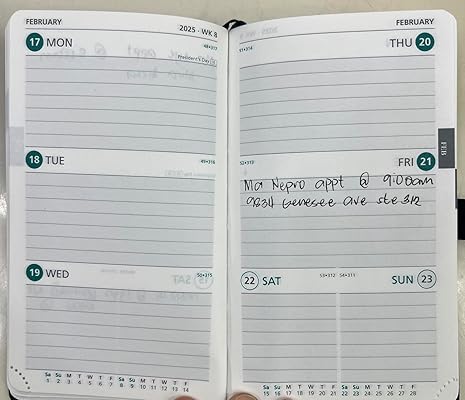 FEBRUARY
2025 - WK 8
17 MON
48•317
President's Day
18 TUE
49•316
19 WED
50•315
Sa Su M T W T F Sa Su M T W T F
1 2 3 4 5 6 7 8 9 10 11 12 13 14
FEBRUARY
51•314
THU 20
52•313
FRI 21
FEB
Ma Nepro appt @ 9:00am
9834 Genesee ave ste 312
22 SAT
53•312 54•311
SUN 23
Sa Su M T W T F Sa Su M T W T F
15 16 17 18 19 20 21 22 23 24 25 26 27 28